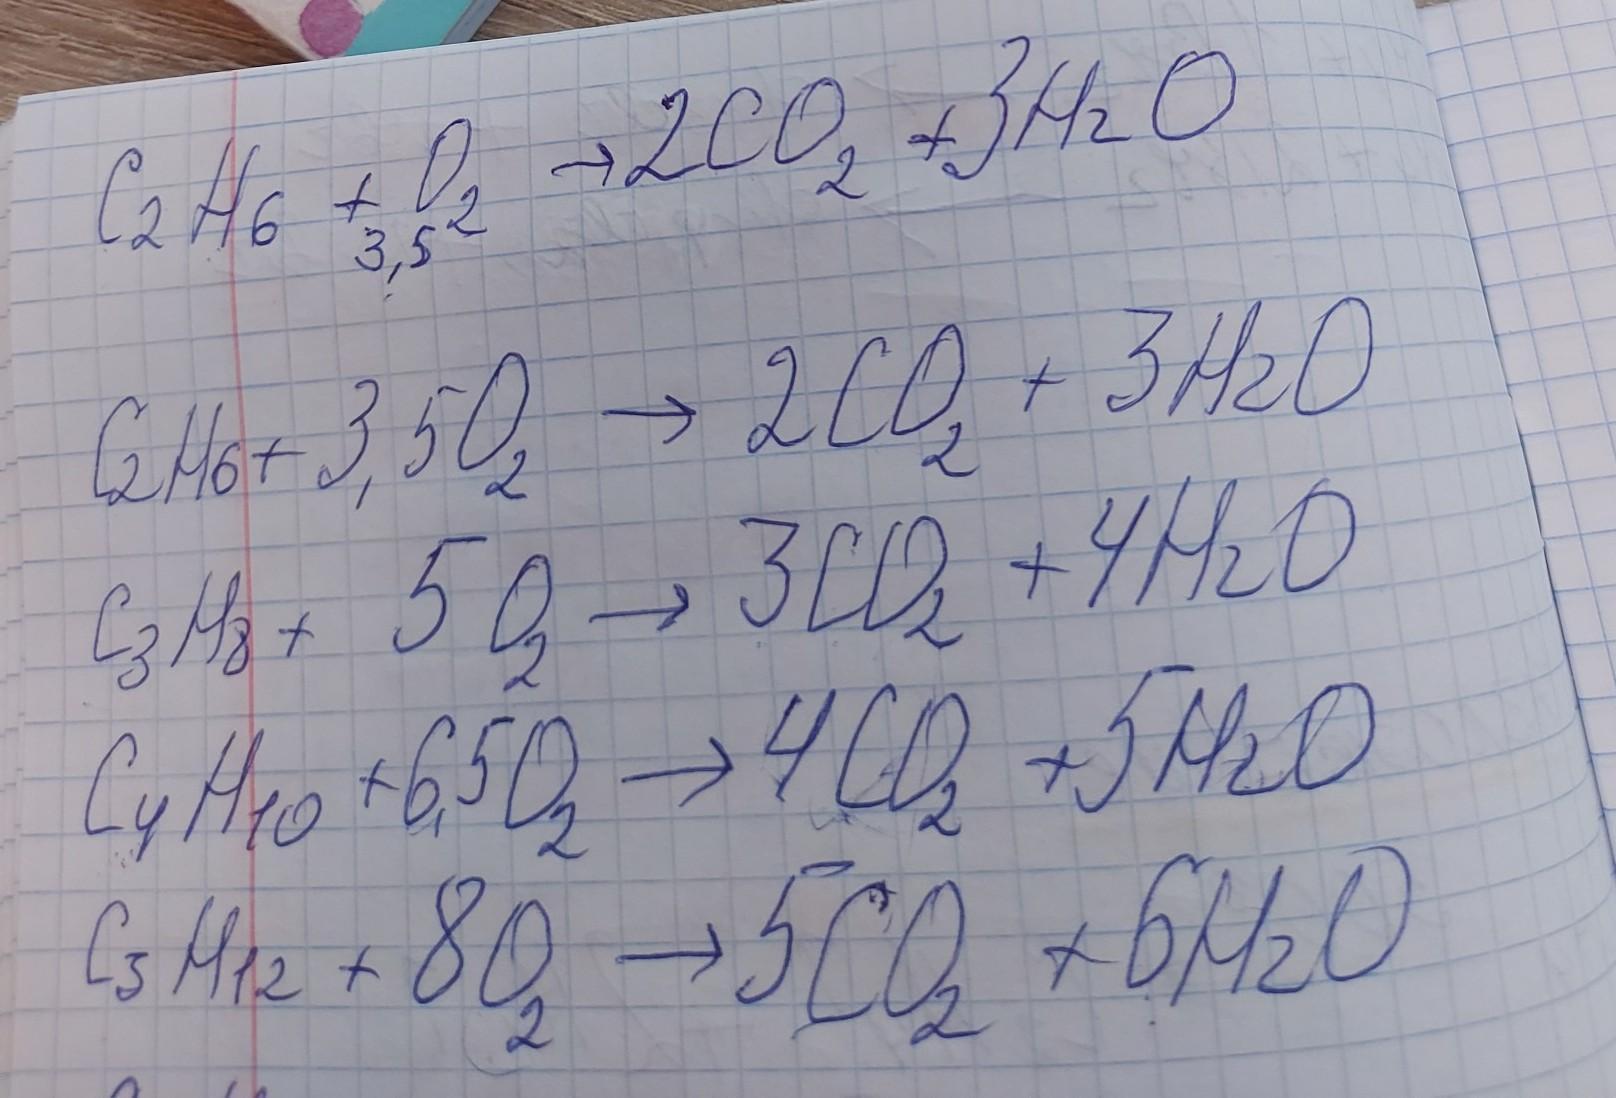 C₂H₆ + 3,5 O₂ → 2CO₂ + 3H₂O
C₂H₆ + 3,5O₂ → 2CO₂ + 3H₂O
C₃H₈ + 5O₂ → 3CO₂ + 4H₂O
C₄H₁₀ + 6,5O₂ → 4CO₂ + 5H₂O
C₅H₁₂ + 8O₂ → 5CO₂ + 6H₂O